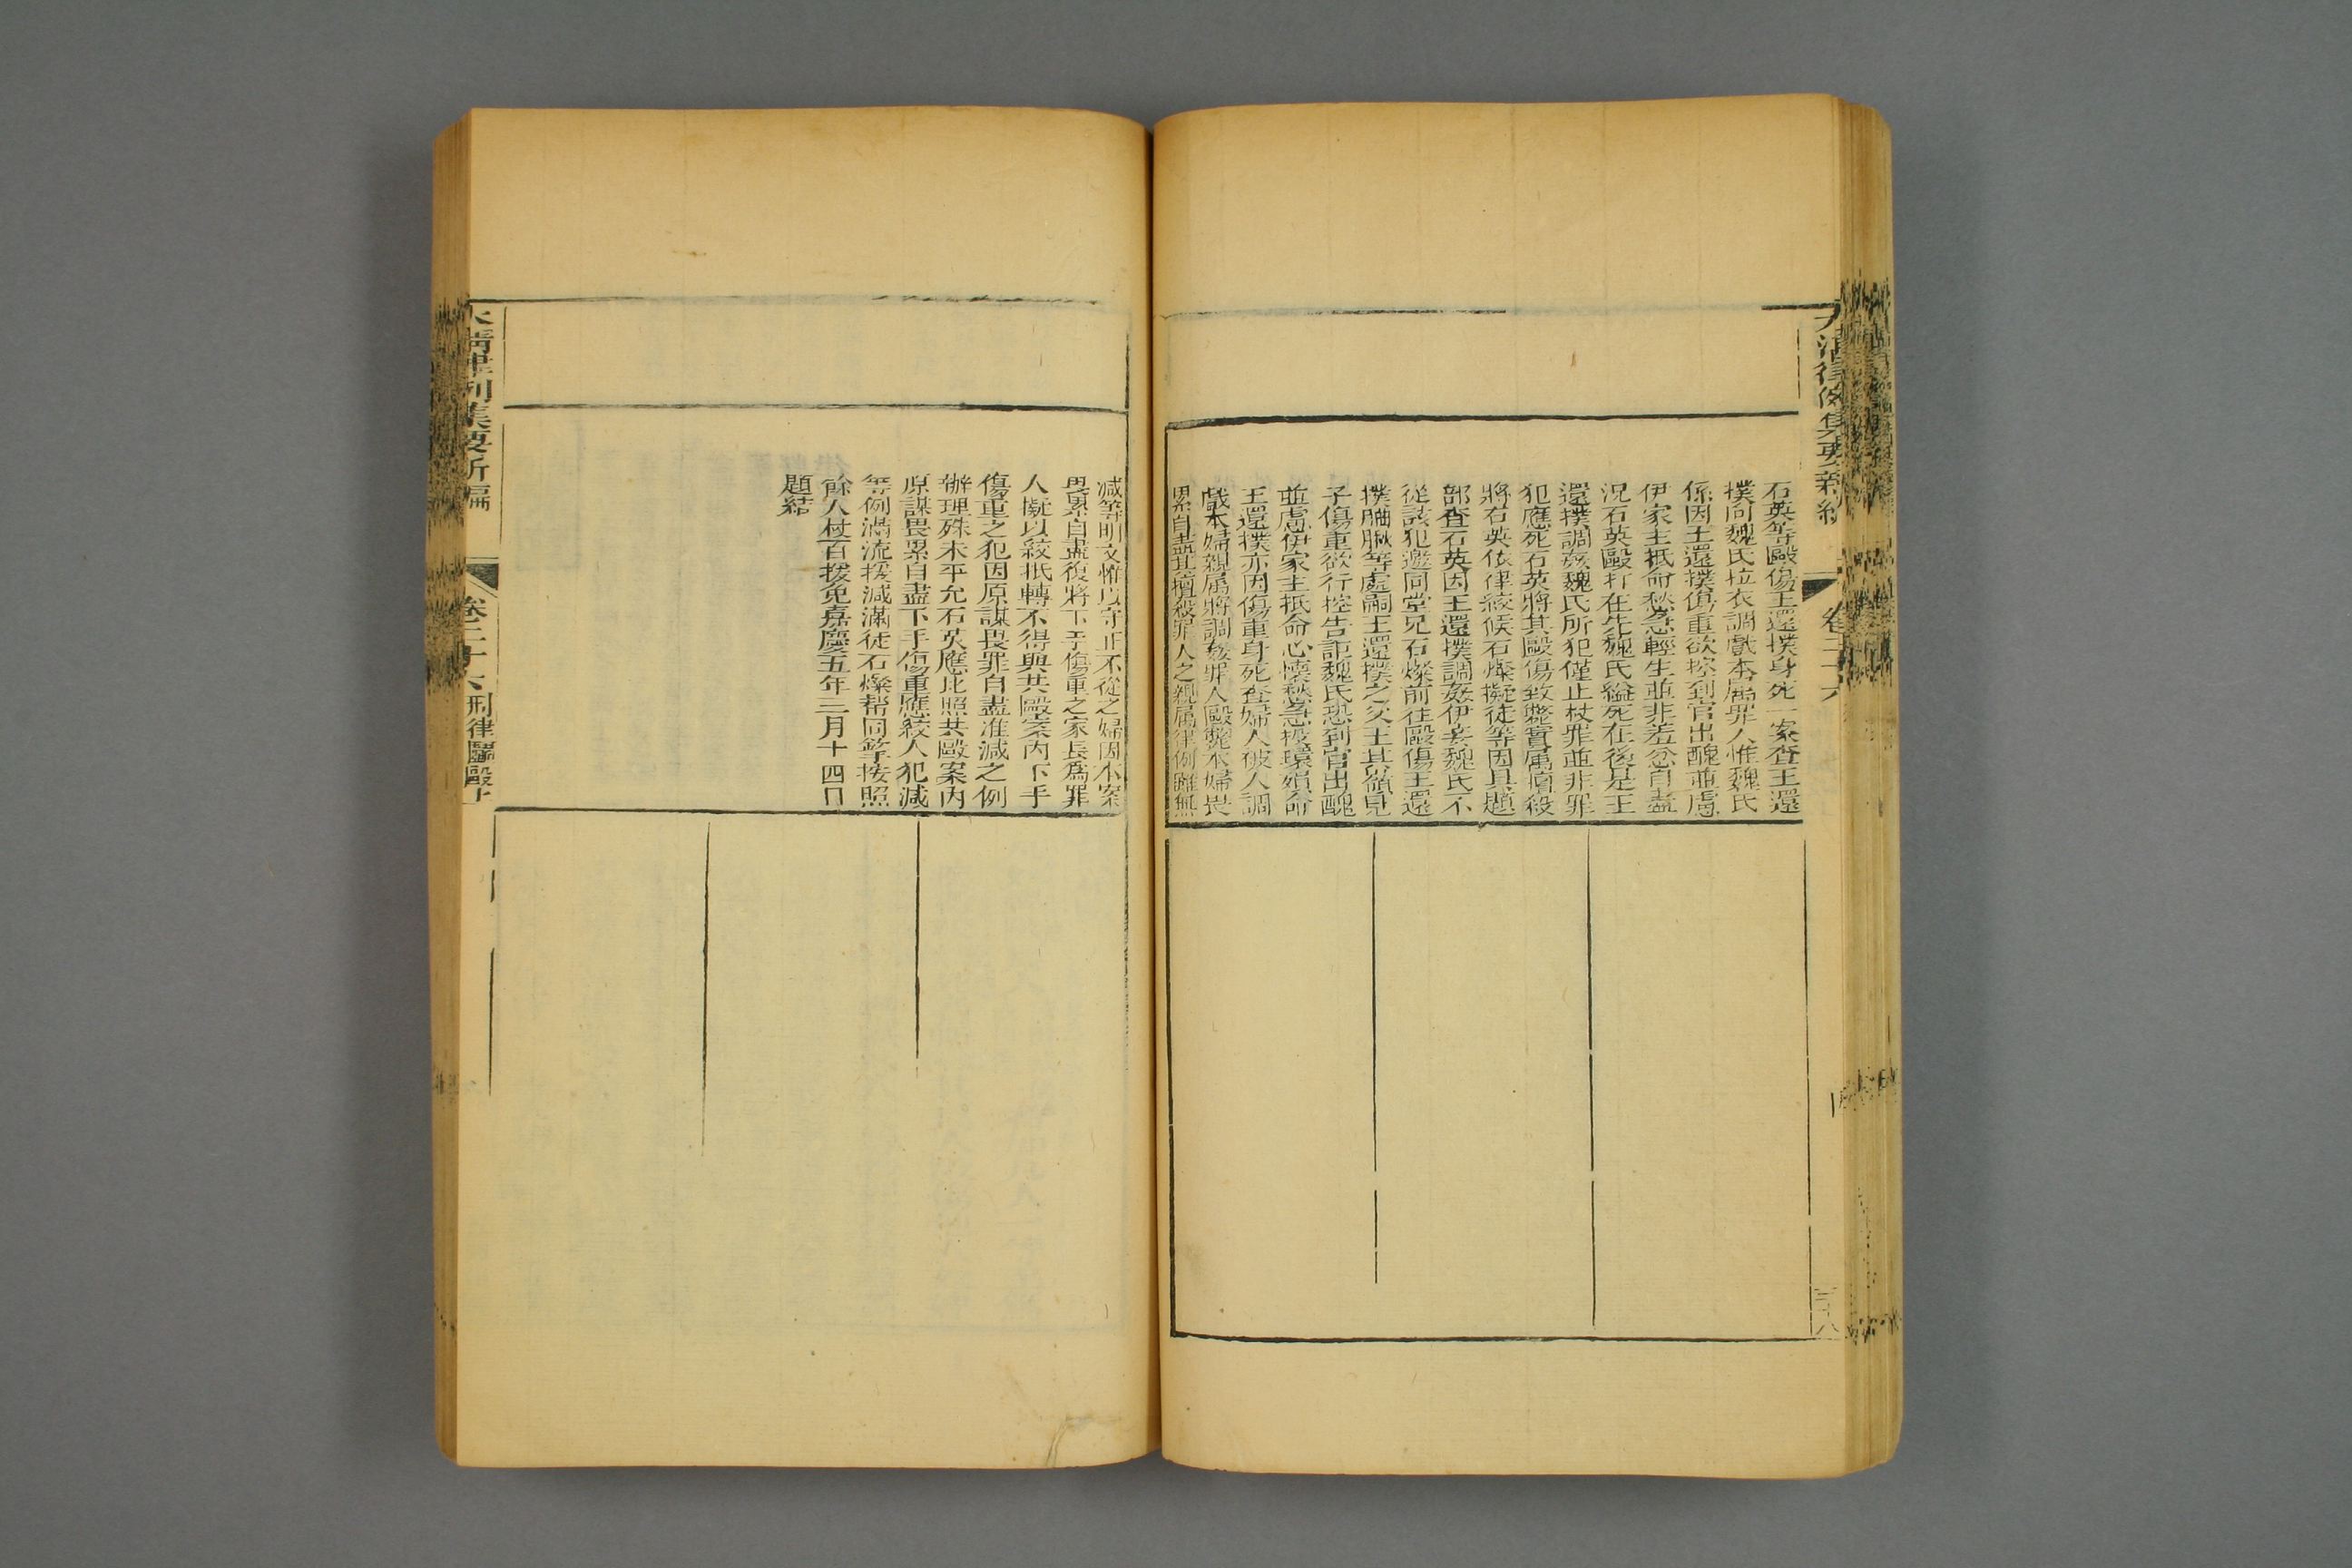 大清律例集要新編
卷二十六
三十八
石英等毆傷王還撲身死一案查王還
撲向魏氏拉衣調戲本屬罪人惟魏氏
係因王還撲傷重欲控到官出醜並慮
伊家主抵命愁急輕生並非羞忿自盡
況石英毆打在先魏氏縊死在後是王
還撲調姦魏氏所犯僅止杖罪並非罪
犯應死石英將其毆傷致斃實屬擅殺
將石英依律絞候石燦擬徒等因具題
部查石英因王還撲調姦伊妾魏氏不
從該犯邀同堂兄石燦前往毆傷王還
撲腦腋等處嗣王還撲之父王其領見
子傷重欲行控告詎魏氏恐到官出醜
並慮伊家主抵命心懷愁急投環殞命
王還撲亦因傷重身死查婦人被人調
戲本婦親屬將調姦罪人毆斃本婦畏
累自盡其擅殺罪人之親屬律例雖無
減等明文惟以守正不從之婦因本案
畏累自盡復將下手傷重之家長為罪
人擬以絞抵轉不得與共毆案內下手
傷重之犯因原謀畏罪自盡准減之例
辦理殊未平允石英應比照共毆案內
原謀畏累自盡下手傷重應絞人犯減
等例滿流援減滿徒石燦幫同拏按照
餘人杖百援免嘉慶五年三月十四日
題結
大清律例集要新編
卷二十六刑律鬬毆上